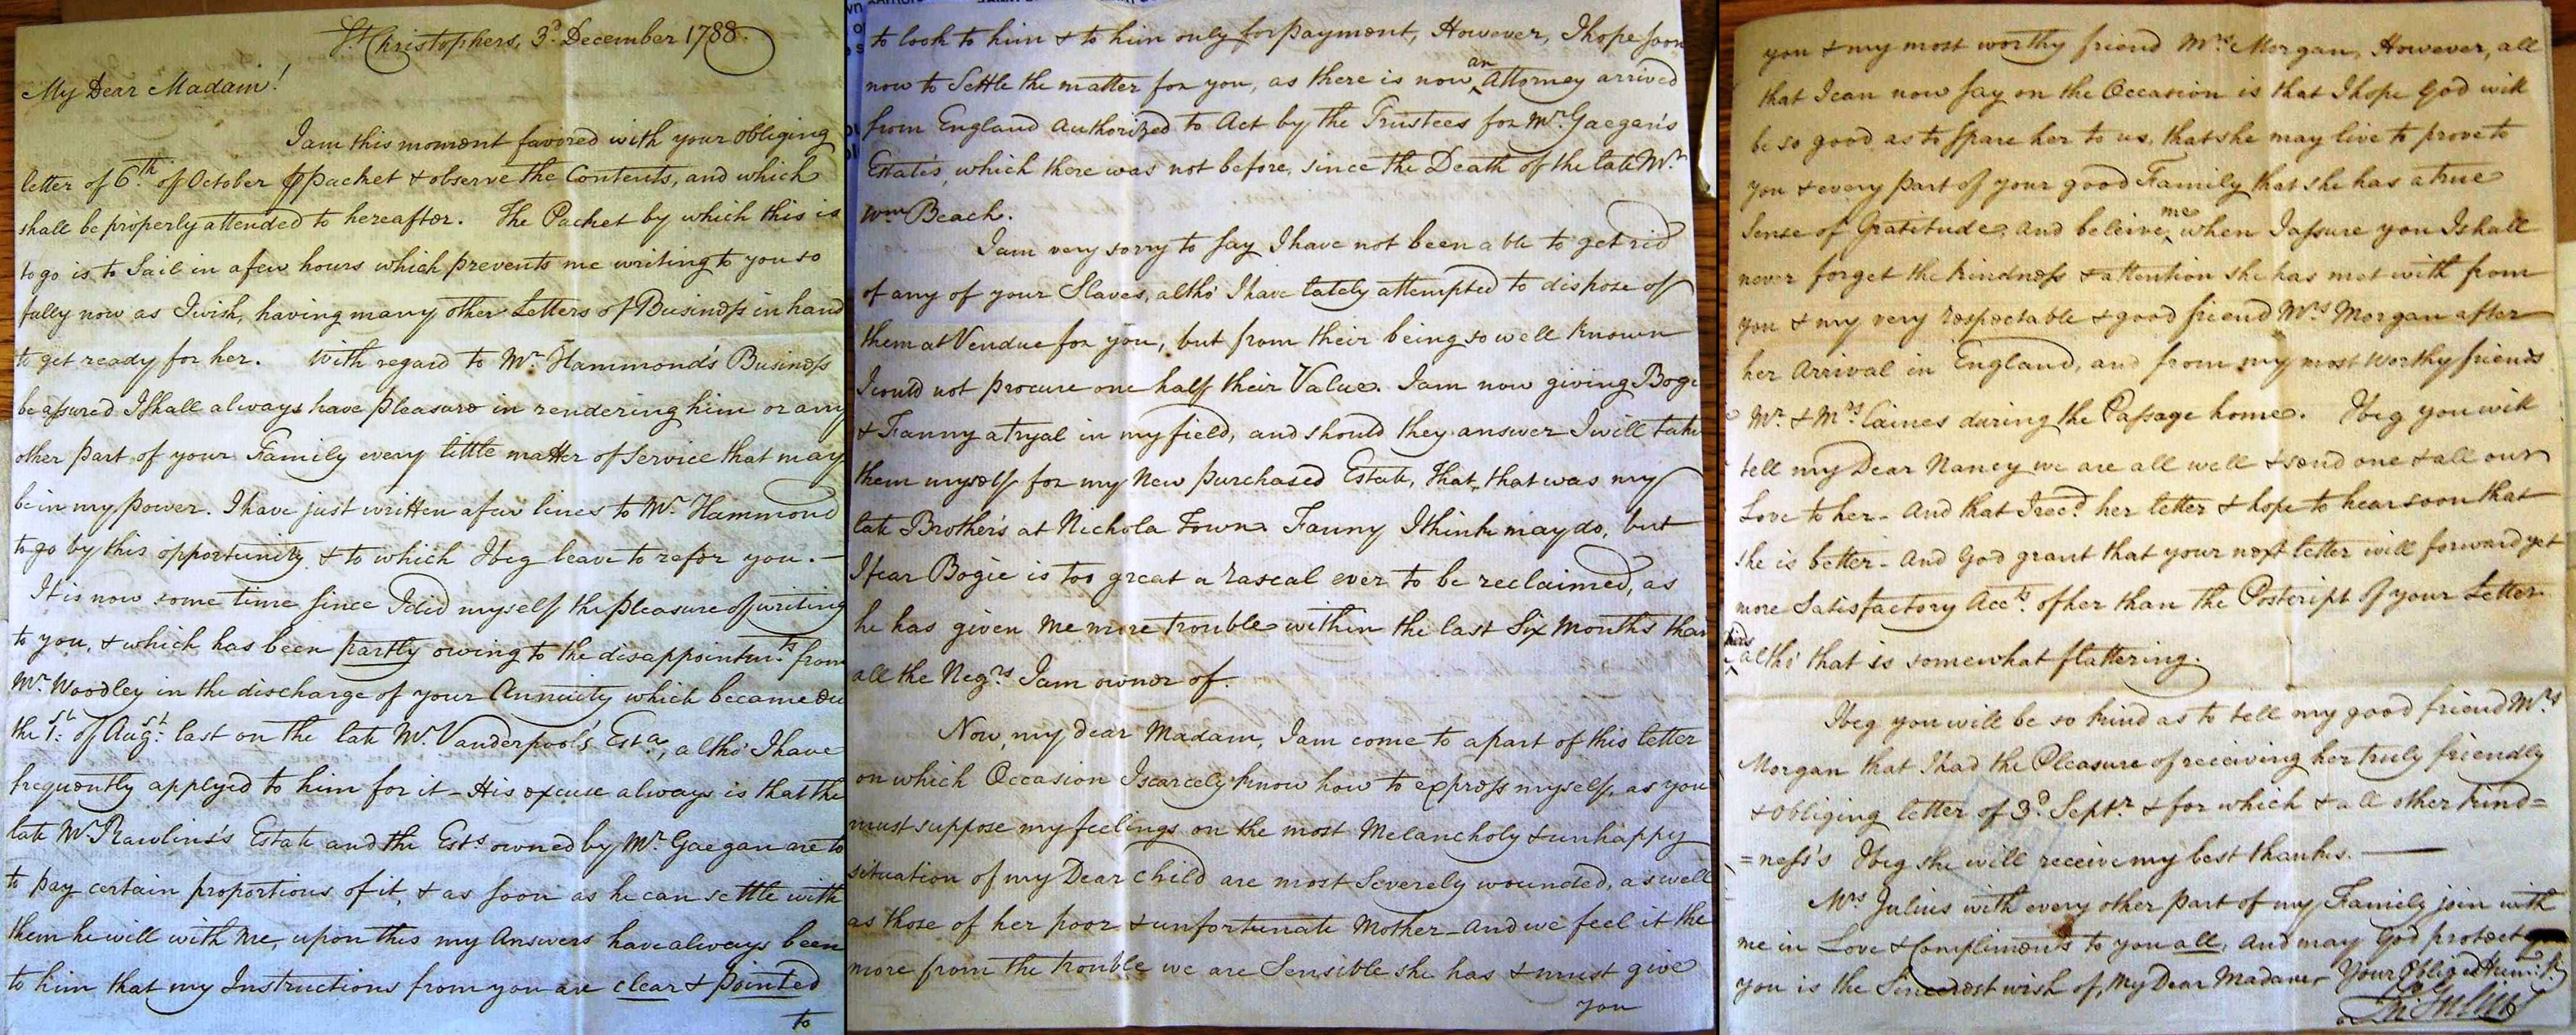 St Christophers, 3d December 1788.
My Dear Madam!
I am this moment favored with your obliging
letter of 6th of October ⅌ packet & observe the Contents, and which
shall be properly attended to hereafter. The Packet by which this is
to go is to Sail in a few hours which prevents me writing to you so
fully now as I wish, having many other Letters of Business in hand
to get ready for her. With regard to Mr Hammond's Business
be assured I shall always have pleasure in rendering him or any
other part of your Family every little matter of Service that may
be in my power. I have just written a few lines to Mr Hammond
to go by this opportunity & to which I beg leave to refer you. —
It is now some time since I did myself the pleasure of writing
to you, & which has been partly owing to the disappointmts from
Mr Woodley in the discharge of your Annuity which became du
the 1st of Augst last on the late Mr Vanderpool's Esta, altho' I have
frequently applyed to him for it - His excuse always is that the
late Mr Rawlins's Estate and the Ests owned by Mr Gaegan are to
to pay certain proportions of it, & as soon as he can settle with
them he will with me, upon this my Answers have always been
to him that my Instructions from you are clear & pointed
to
to look to him & to him only for payment, However, I hope soon
now to Settle the matter for you, as there is now an Attorney arrived
from England Authorized to Act by the Trustees for Mr Gaegan's
Estates, which there was not before, since the Death of the late Mr
Wm Beach.
I am very sorry to say I have not been able to get rid
of any of your Slaves, altho' I have lately attempted to dispose of
them at Vendue for you, but from their being so well known
I could not procure one half their Value. I am now giving Bogi
& Fanny a tryal in my field, and should they answer I will take
them myself for my New purchased Estate, that, that was my
late Brother's at Nichola Town. Fanny I think may do, but
I fear Bogie is too great a rascal ever to be reclaimed, as
he has given me more trouble within the last Six Months than
all the Negrs I am owner of.
Now, my dear Madam, I am come to a part of this letter
on which Occasion I scarcely know how to express myself, as you
must suppose my feelings on the most Melancholy & unhappy
situation of my Dear Child are most Severely wounded, as well
as those of her poor & unfortunate Mother - And we feel it the
more from the trouble we are Sensible she has & must give
you
you & my most worthy friend Mrs Morgan, However, all
that I can now say on the Occasion is that I hope God will
be so good as to spare her to us, that she may live to prove to
you & every part of your good Family that she has a true
Sense of Gratitude. And beleive me when I assure you I shall
never forget the kindness & attention she has met with from
you & my very respectable & good friend Mrs Morgan after
her Arrival in England, and from my most worthy friends
Mr & Mrs Caines during the Passage home. I beg you will
tell my Dear Nancy we are all well & send one & all our
Love to her - And that I recd her letter & hope to hear soon that
she is better - And God grant that your next letter will forward yet
more Satisfactory Accts of her than the Postcript of your Letter
altho' that is somewhat flattering.
I beg you will be so kind as to tell my good friend Mrs
Morgan that I had the Pleasure of receiving her truly friendly
& Obliging letter of 3d Septr & for which & all other kind=
=ness's I beg she will receive my best thanks. —
Mrs Julius with every other part of my Family join with
me in Love & Compliments to you all, And may God protect
you is the Sincerest wish of, My Dear Madam, Your Obliged Humb St
Julius